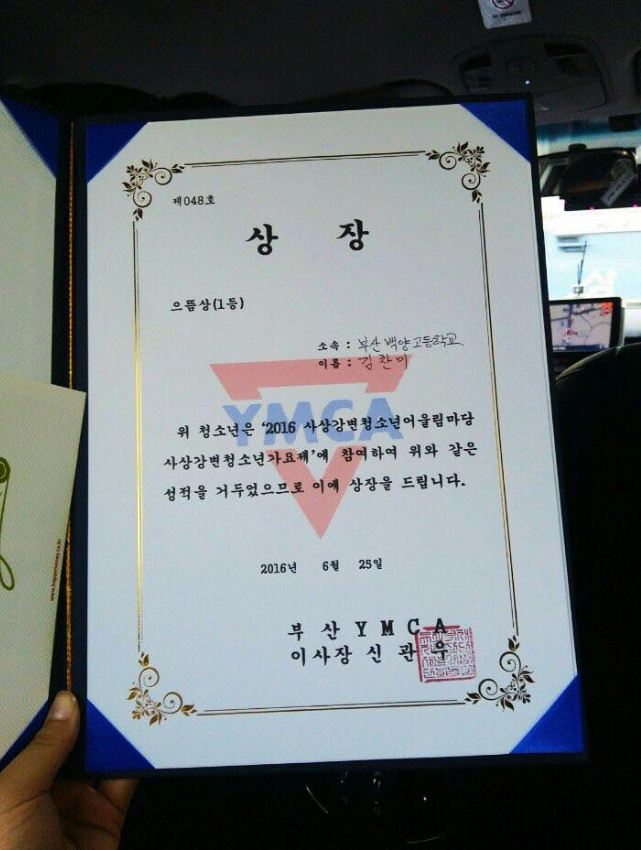 제048호
상 장
으뜸상(1등)
소속 : 부산백양고등학교
이름 : 김찬미
YMCA
위 청소년은 '2016 사상강변청소년어울림마당
사상강변청소년가요제'에 참여하여 위와 같은
성적을 거두었으므로 이에 상장을 드립니다.
2016년 6월 25일
부 산 Y M C A
이사장 신 관 우